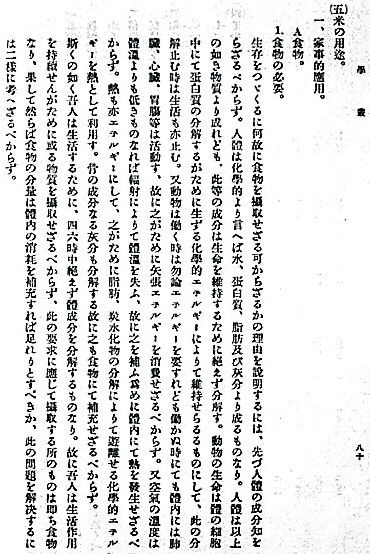 學藝
八十
(五)米の用途。
一、家事的應用。
A食物。
1.食物の必要。
生存をつゞくるに何故に食物を攝取せざる可からざるかの理由を說明するには、先づ人體の成分を知
らざるべからず。人體は化學的より言へば水、蛋白質、脂肪及び灰分より成るものなり。人體は以上
の如き物質より成れども、此等の成分は生命を維持するために絕えず分解す。動物の生命は體の細胞
中にて蛋白質の分解するがために生ずる化學的エネルギーによりて維持せらるるものにして、此の分
解止む時は生活も亦止む。又動物は働く時は勿論エネルギーを要すれども働かぬ時にても體內には肺
臟、心臟、胃腸等は活動す、故に之がために矢張エネルギーを消費せざるべからず。又空氣の溫度は
體溫よりも低きものなれば輻射によりて體溫を失ふ、故に之を補ふ爲めに體內にて熱を發生せざるべ
からず。熱も亦エネルギーにして、之がために脂肪、炭水化物の分解によりて遊離せる化學的エネル
ギーを熱として利用す。骨の成分なる灰分も分解する故に之も食物にて補充せざるべからず。
斯くの如く吾人は生活するために、四六時中絕えず體成分を分解するものなり。故に吾人は生活作用
を持續せんがために或る物質を攝取せざるべからず、此の要求に應じて攝取する所のものは卽ち食物
なり、果して然らば食物の分量は體內の消耗を補充すれば足れりとすべきか、此の問題を解決するに
は二樣に考へざるべからず。